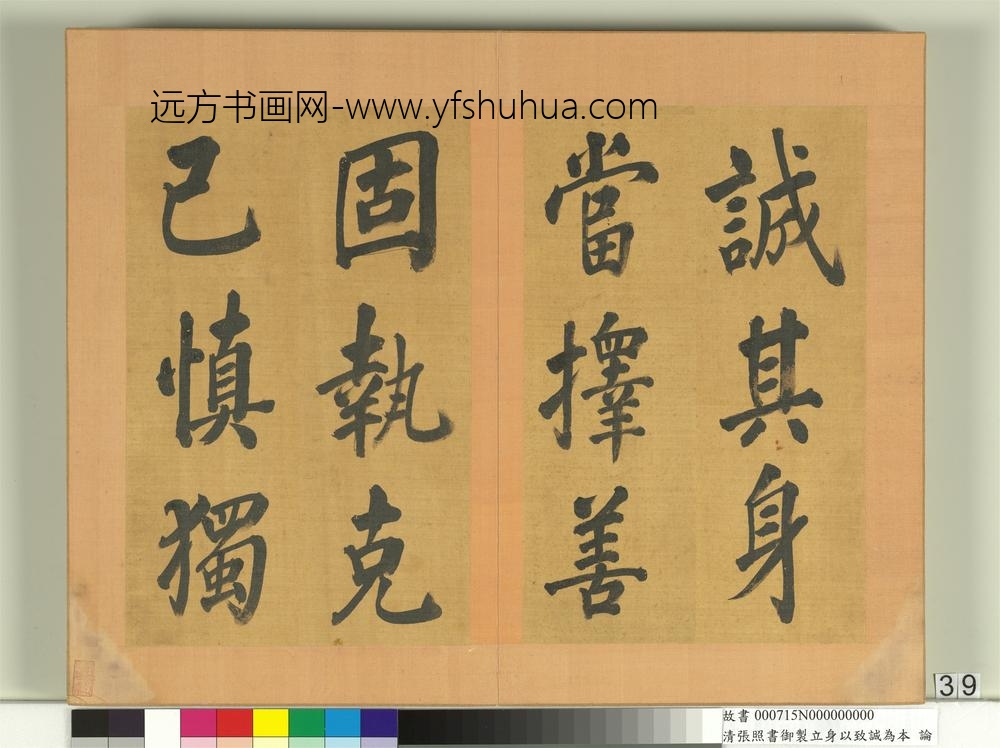 远方书画网-www.yfshuhua.com
誠其身
當擇善
固執克
己慎獨
39
故書 000715N000000000
清張照書御製立身以致誠為本 論